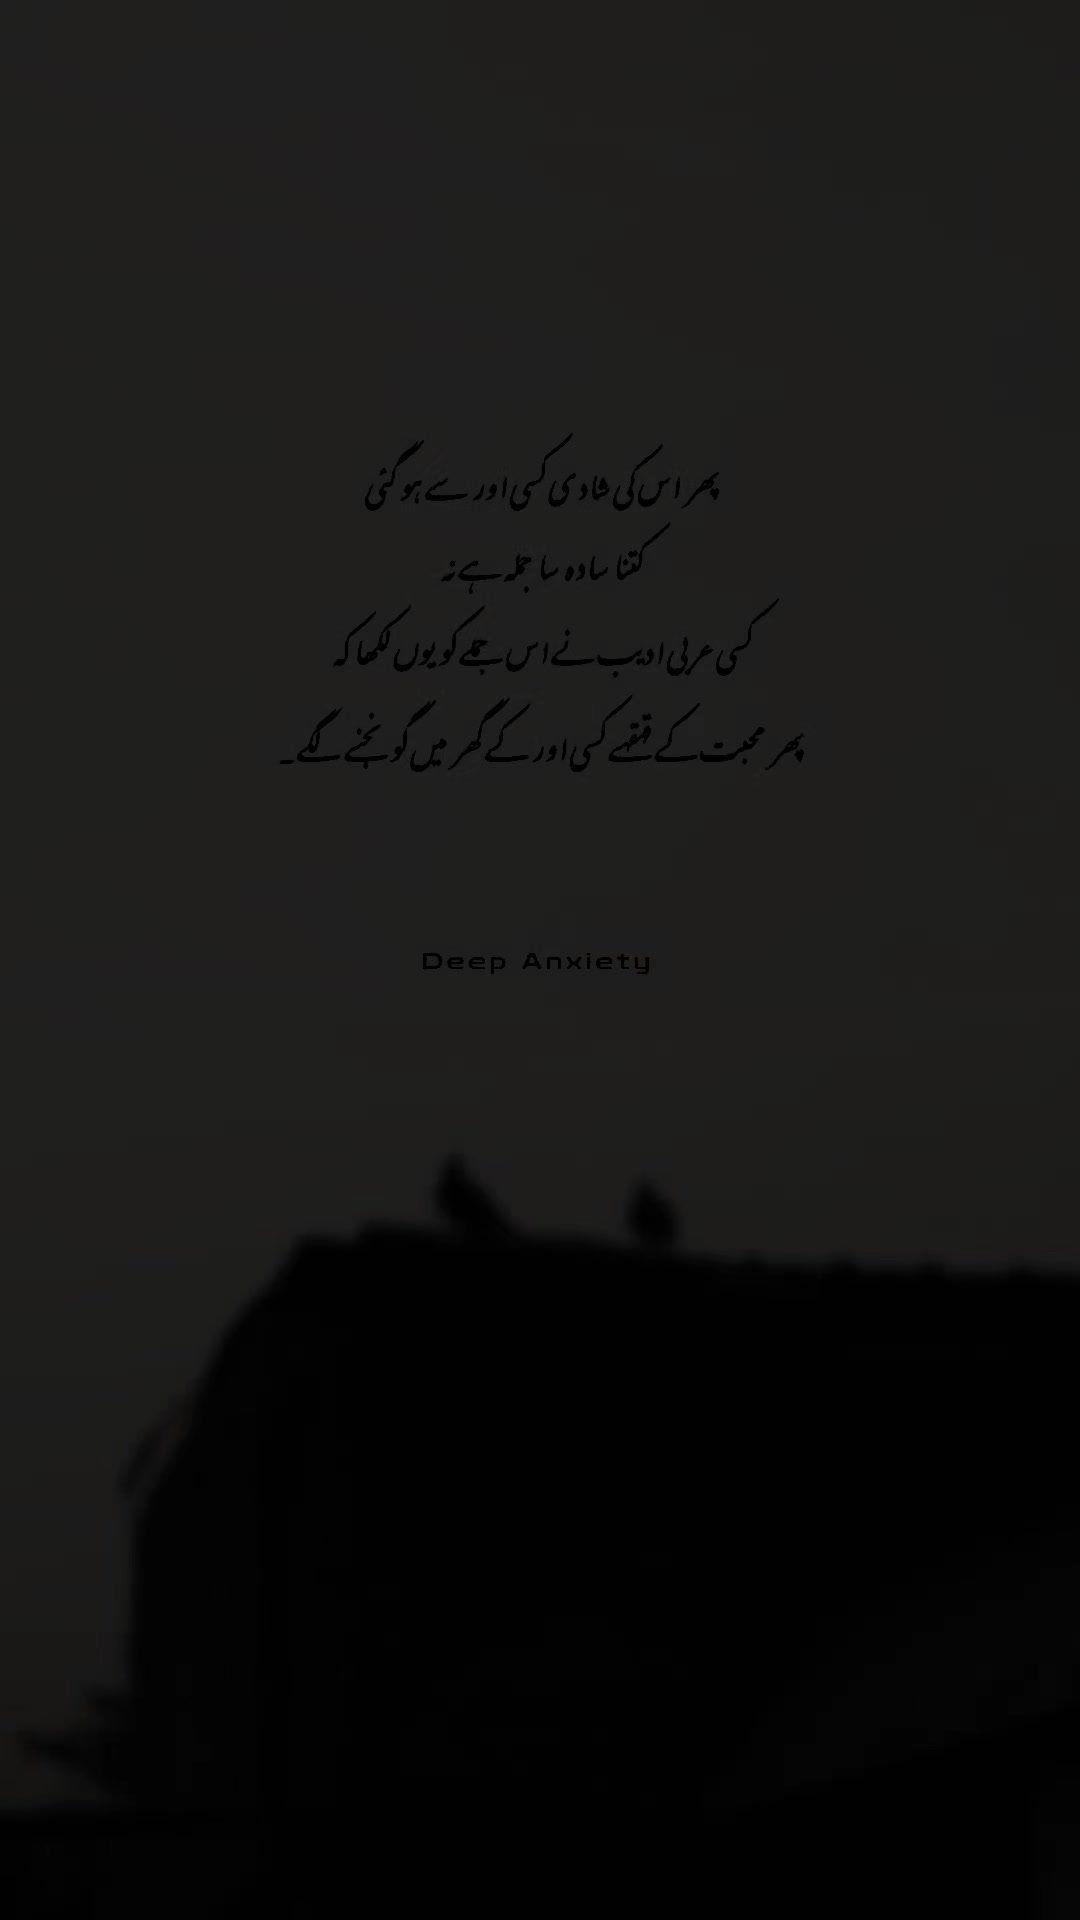 پھر اس کی شادی کسی اور سے ہو گئی
کتنا سادہ سا جملہ ہے نہ
کسی عربی ادیب نے اس جملے کو یوں لکھا کہ
پھر محبت کے قہقہے کسی اور کے گھر میں گونجنے لگے۔
Deep Anxiety